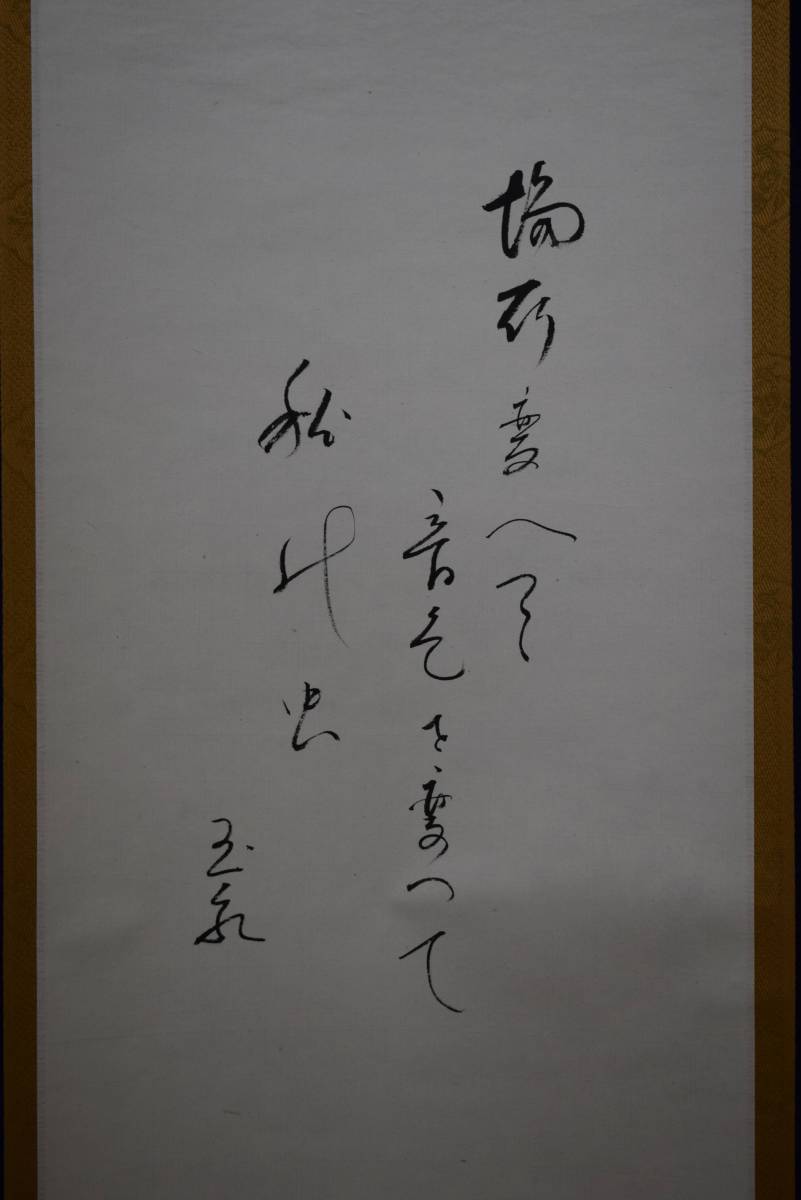 場所変へて
音色を変へて
秋の虫
玉気